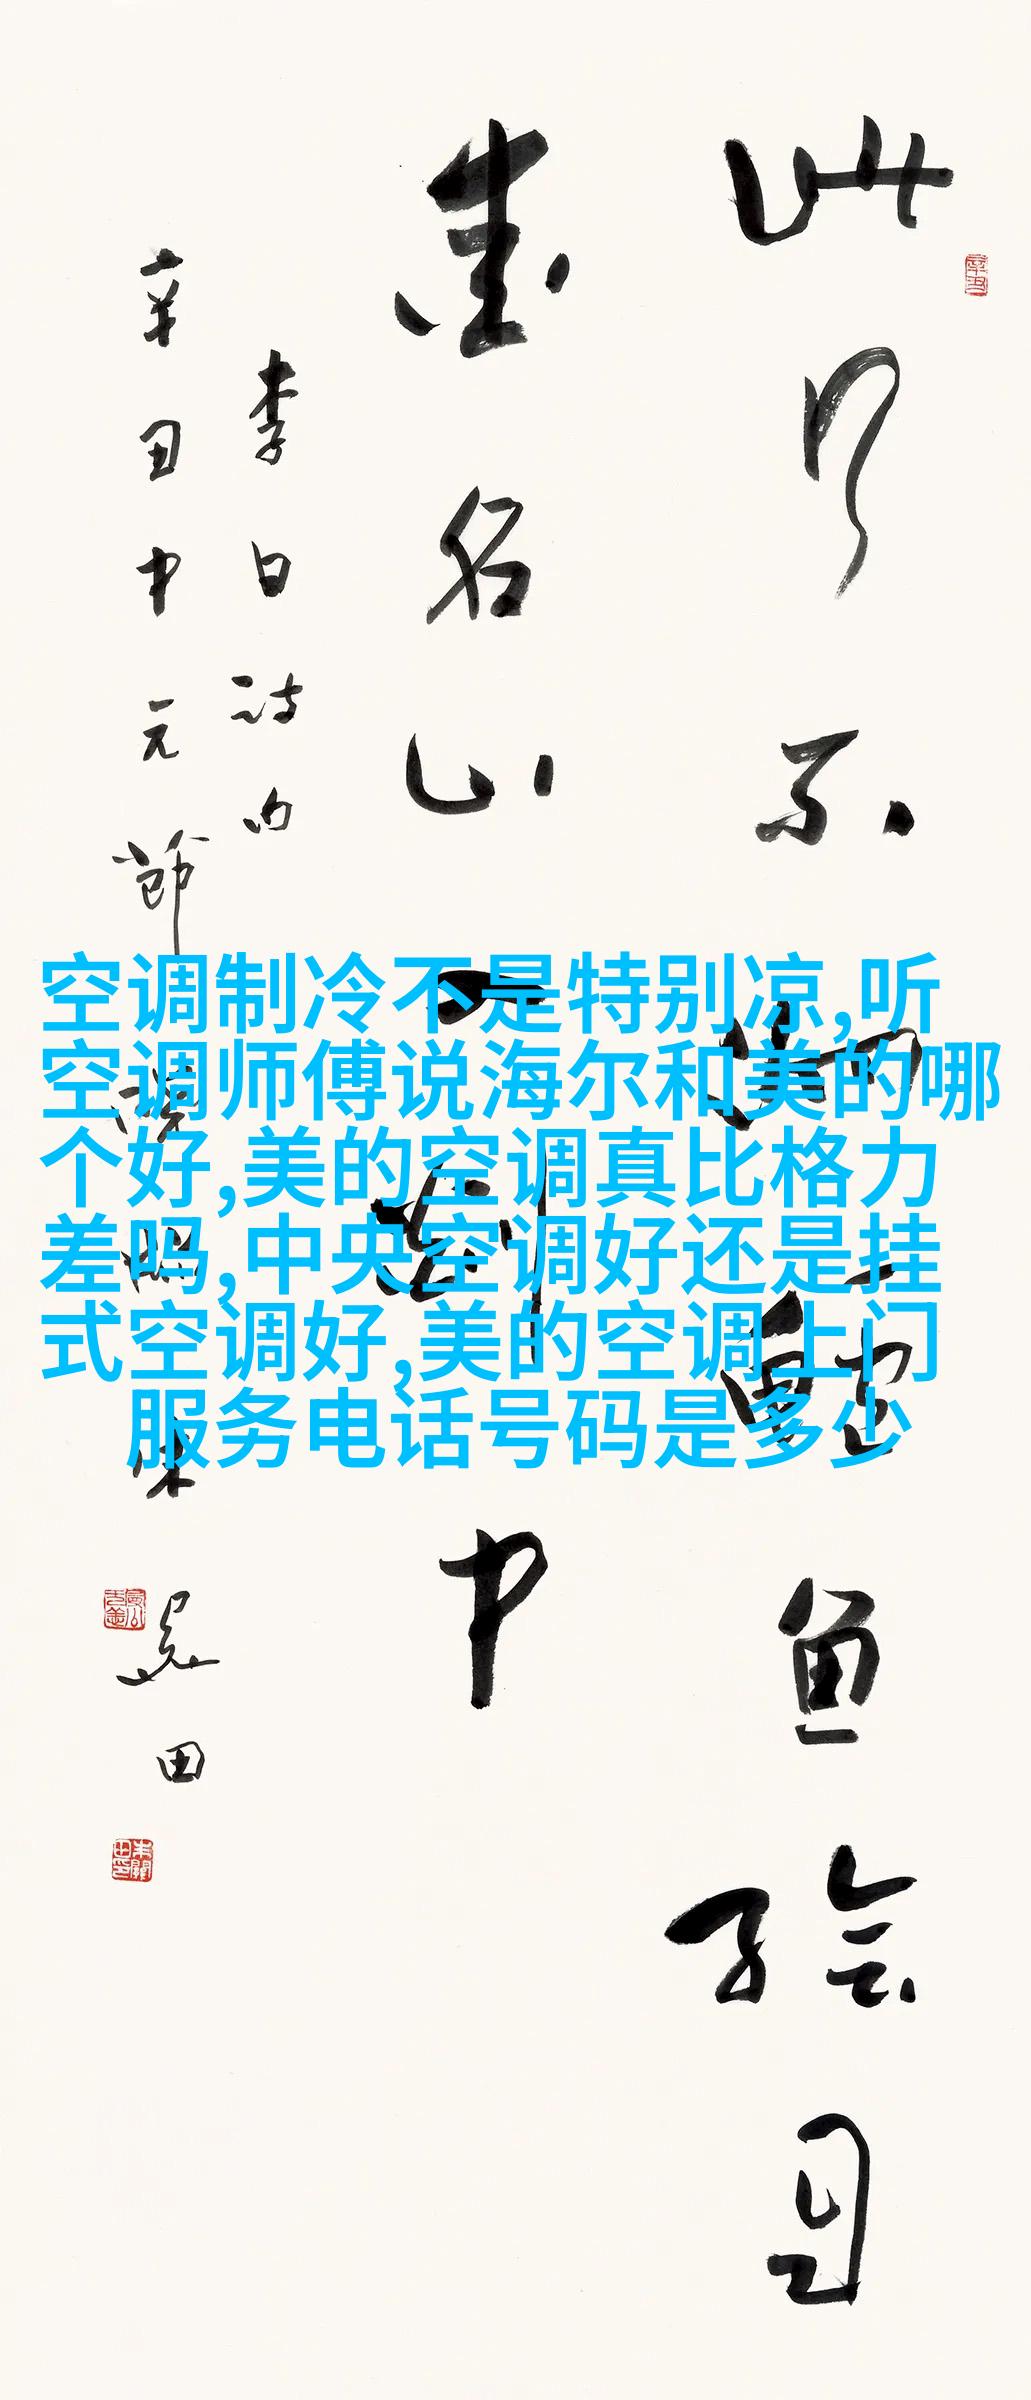 此行不为鲈鱼鲙自
爱名山入剡中
李白诗句
辛丑中元节
空调制冷不是特别凉,听
空调师傅说海尔和美的哪
个好,美的空调真比格力
差吗,中央空调好还是挂
式空调好,美的空调上门
服务电话号码是多少